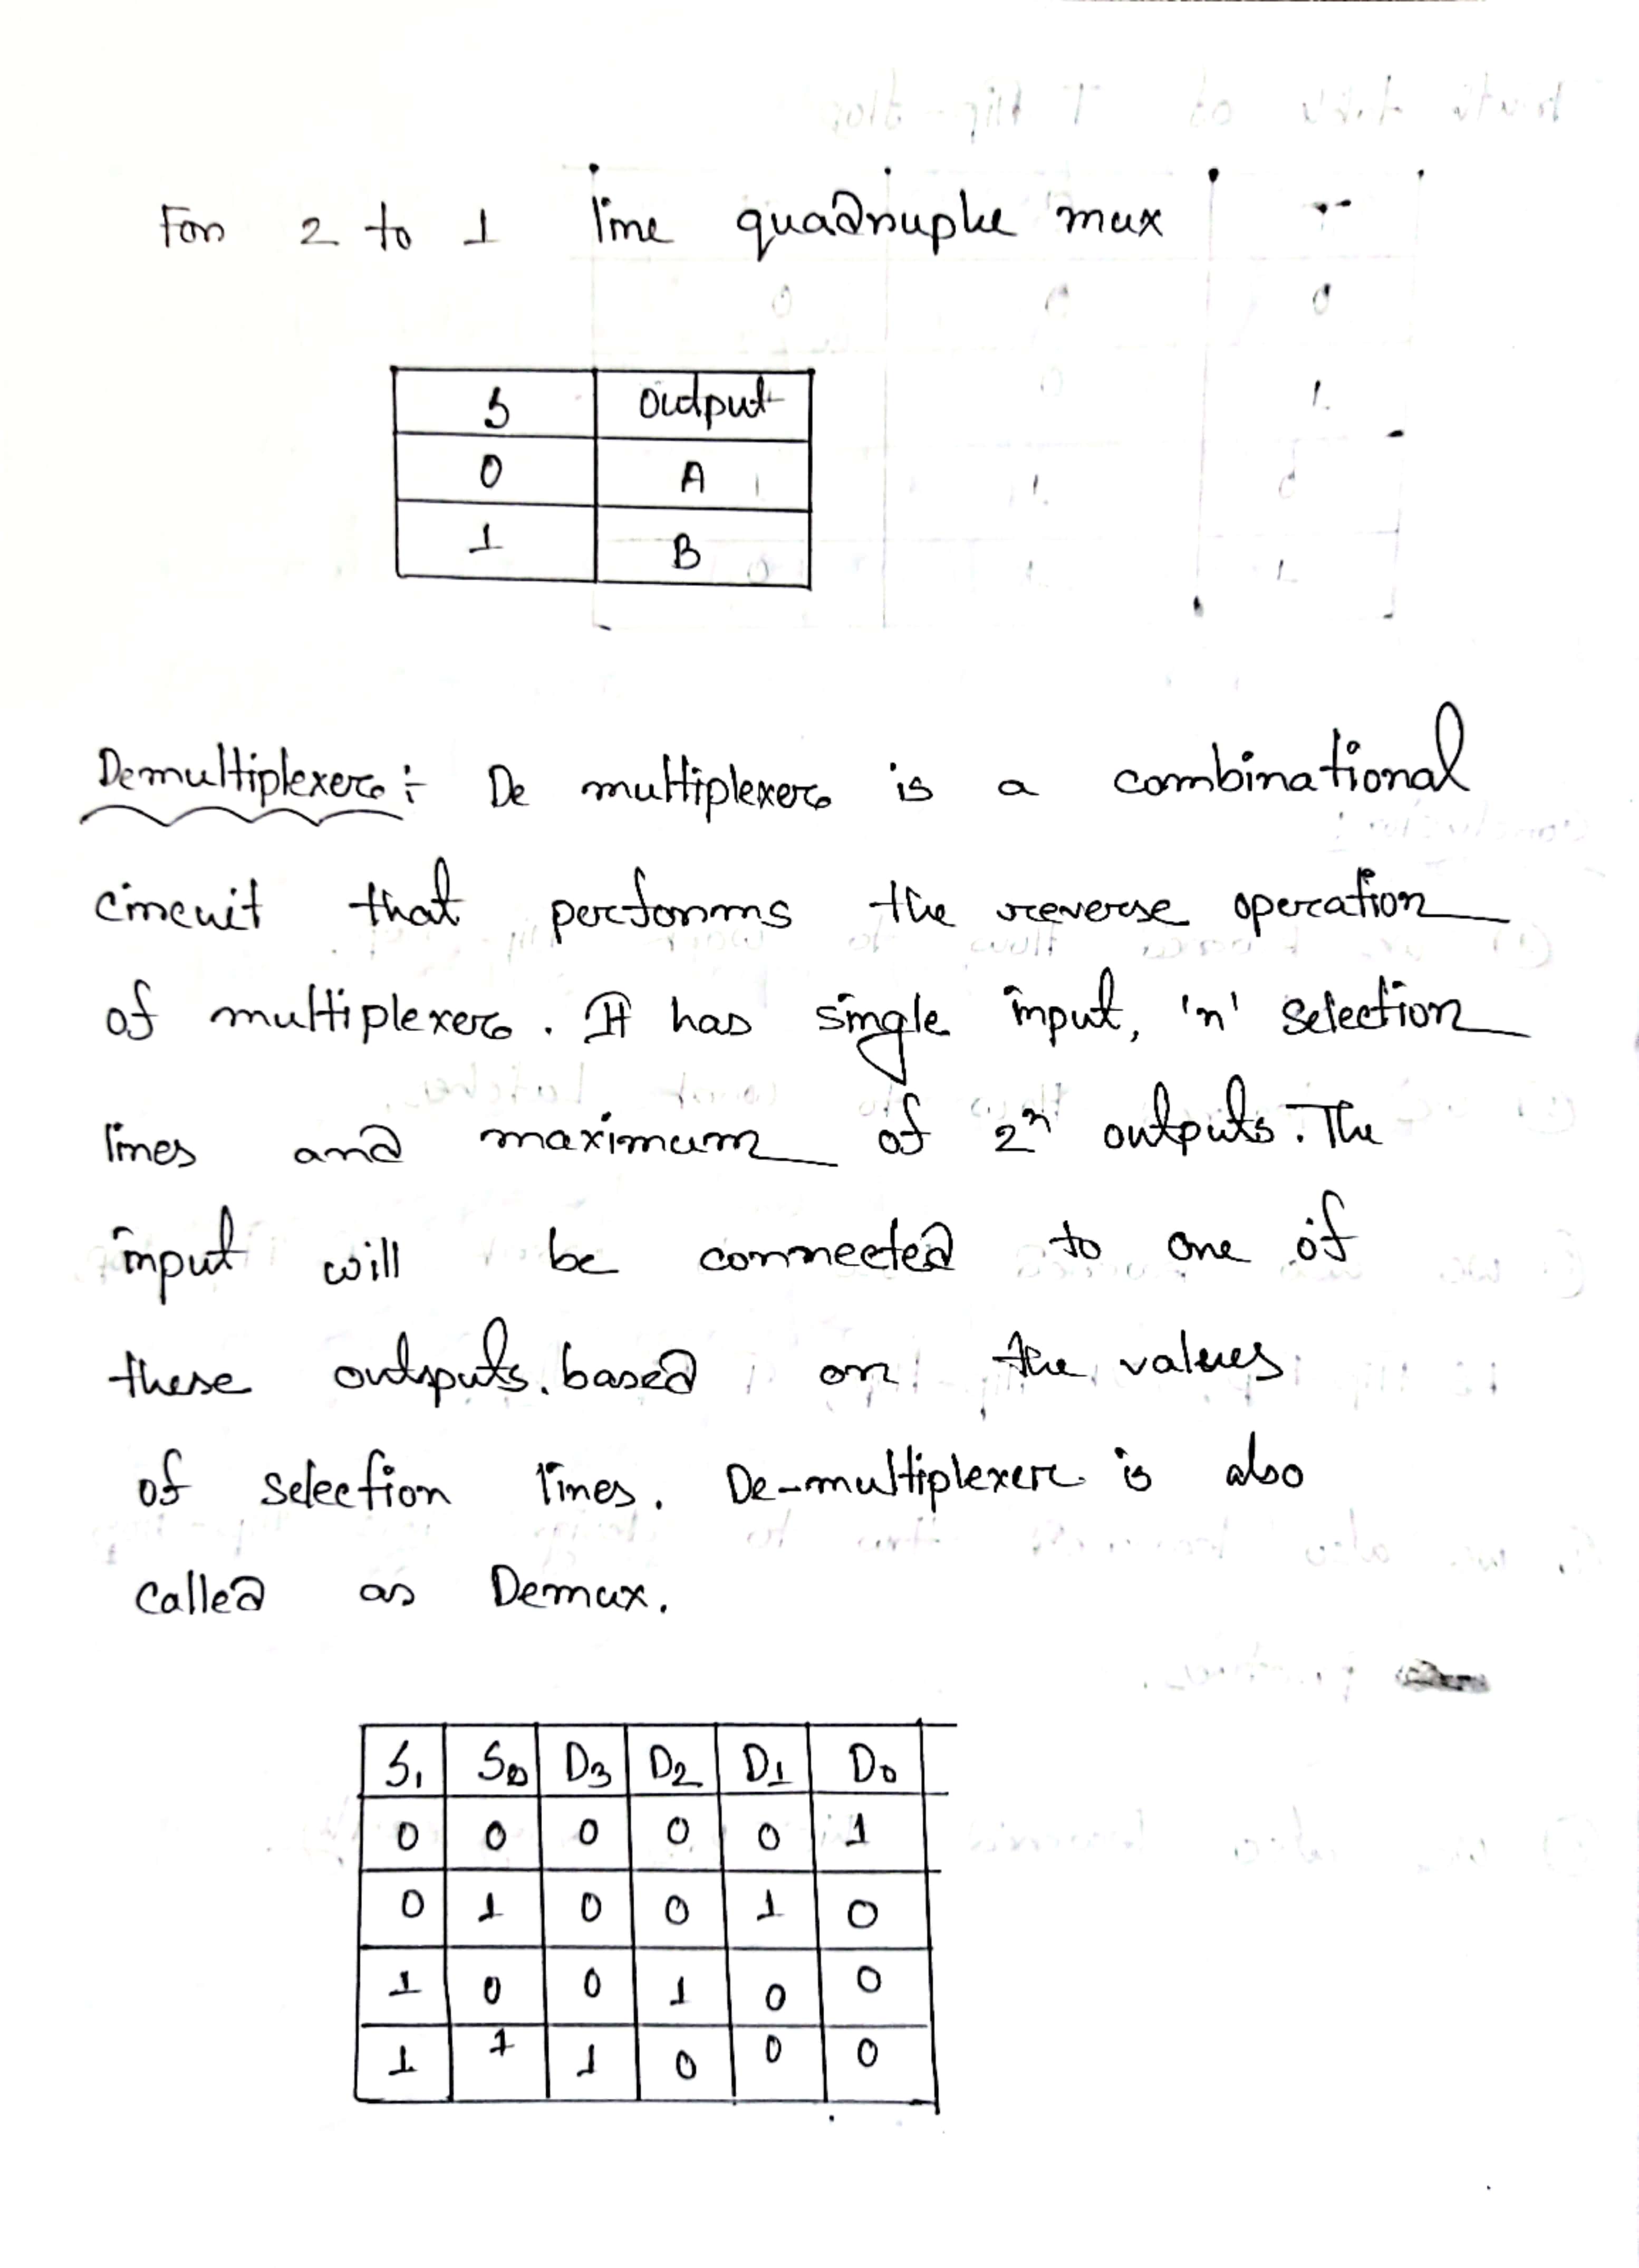 For 2 to 1 line quadruple mux
S Output
0 A
1 B
Demultiplexer : De multiplexer is a combinational
circuit that performs the reverse operation
of multiplexer. It has single input, 'n' selection
lines and maximum of 2ⁿ outputs. The
input will be connected to one of
these outputs. based on the values
of selection lines. De-multiplexer is also
called as Demux.
S₁ S₀ D₃ D₂ D₁ D₀
0 0 0 0 0 1
0 1 0 0 1 0
1 0 0 1 0 0
1 1 1 0 0 0